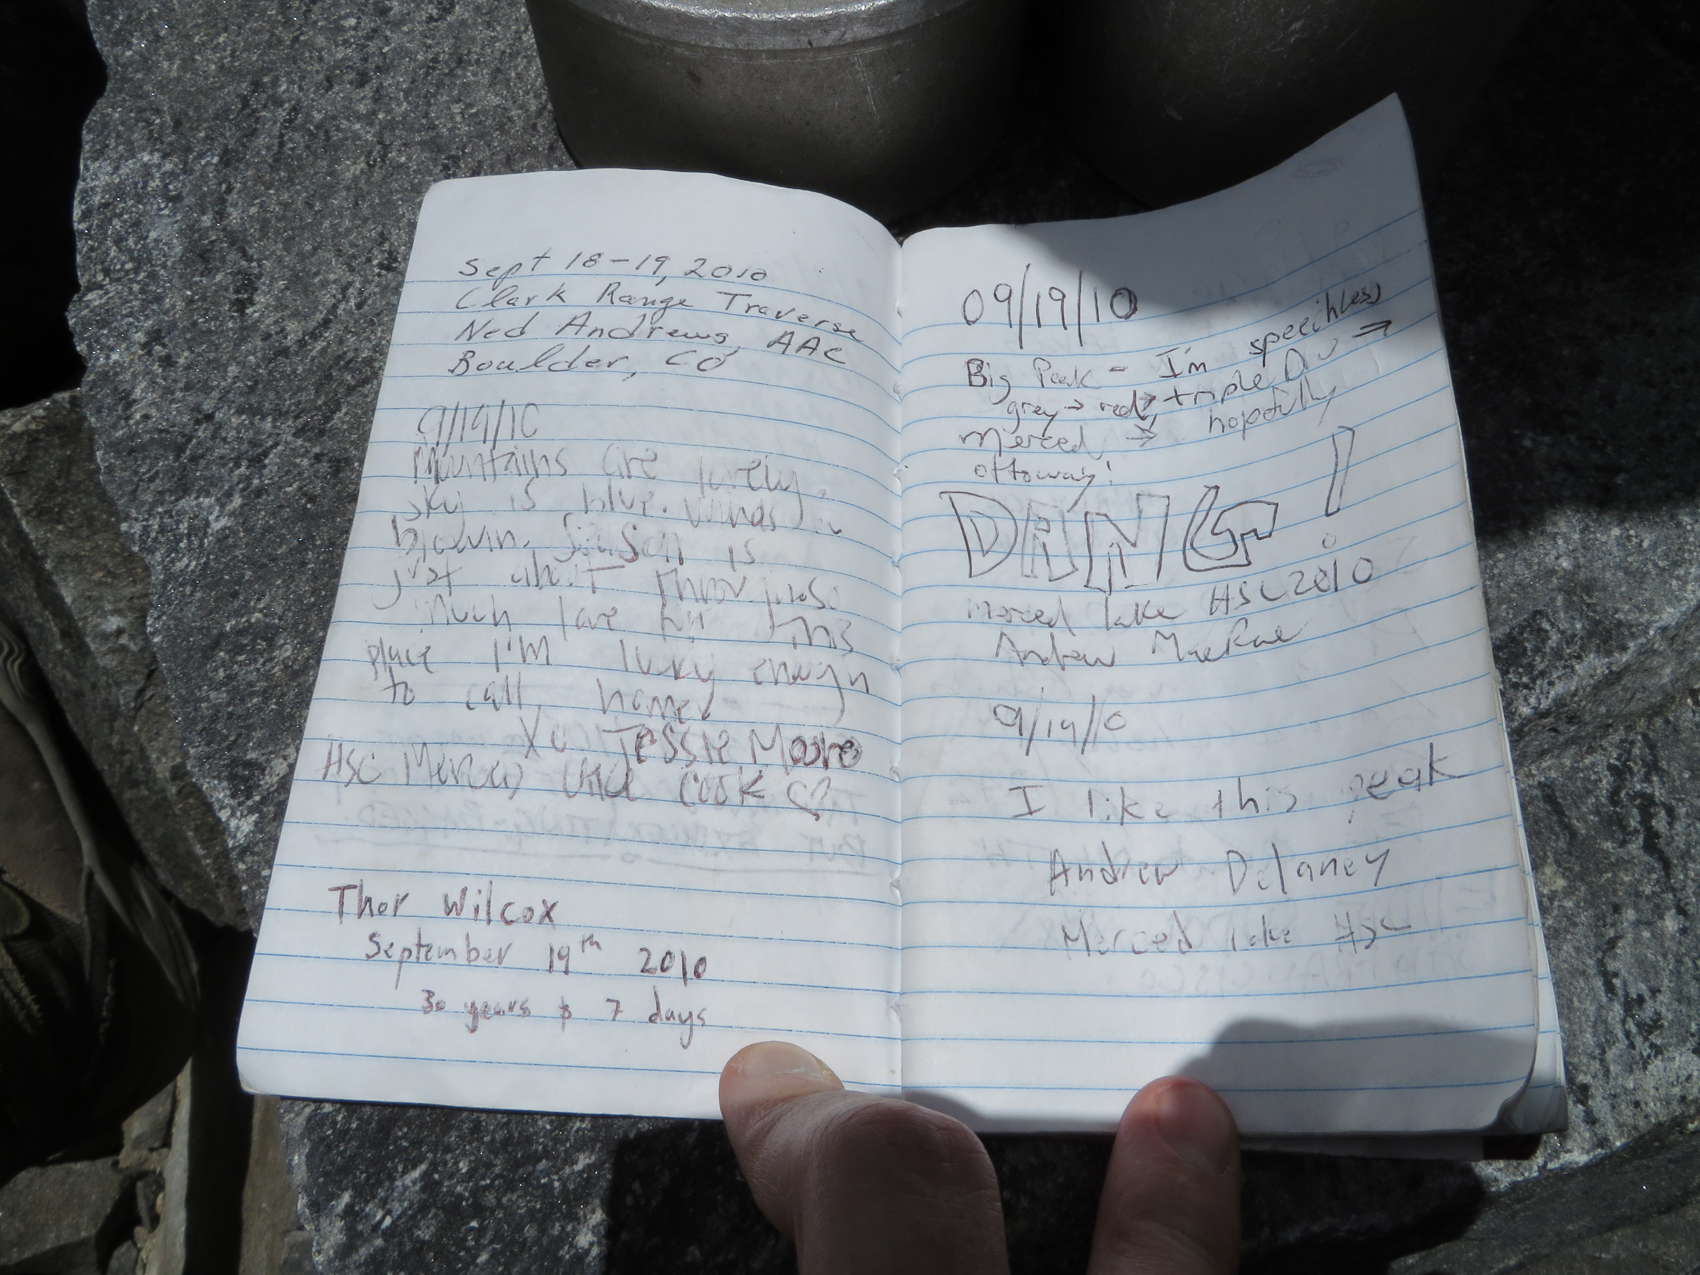 Sept 18-19, 2010
Clark Range Traverse
Ned Andrews, AAC
Boulder, CO
9/19/10
Mountains are lovely.
sky is blue. Winds a
blowin. Season is
just about through.
Much love for this
place I'm lucky enough
to call home.
XO Jessie Moore
HSC Merced Head Cook ♡
Thor Wilcox
September 19th 2010
30 years & 7 days
09/19/10
Big Peak - I'm speechless
grey → red → triple D →
Merced → hopefully
ottoway!
DANG!
merced lake HSC 2010
Andrew MacRae
9/19/10
I like this peak
Andrew Delaney
Merced Lake HSC